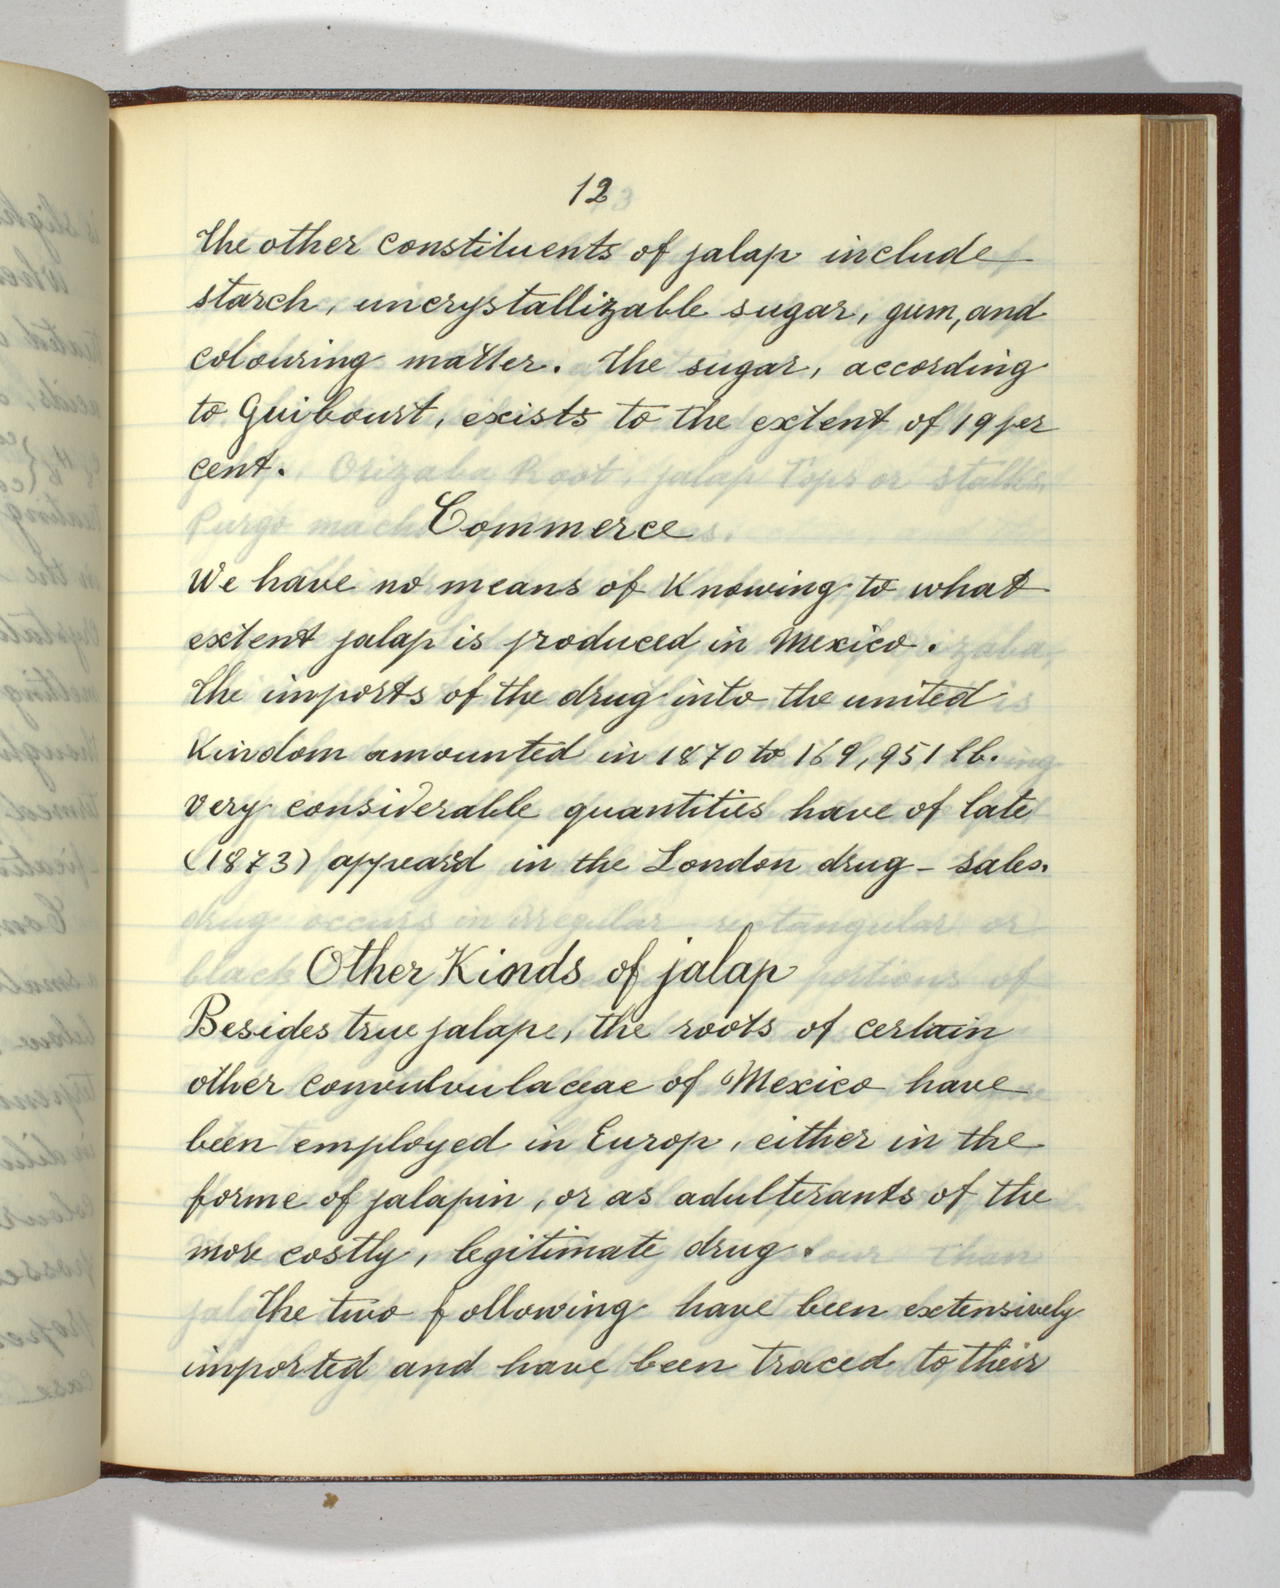 12
The other constituents of jalap include
starch, uncrystallizable sugar, gum, and
colouring matter. The sugar, according
to Guibourt, exists to the extent of 19 per
cent.
Commerce
We have no means of Knowing to what
extent jalap is produced in Mexico.
The imports of the drug into the united
Kindom amounted in 1870 to 169,951 lb.
Very considerable quantities have of late
(1873) appeard in the London drug-sales.
Other Kinds of jalap
Besides true jalape, the roots of certain
other convulvulaceae of Mexico have
been employed in Europ, either in the
forme of jalapin, or as adulterants of the
more costly, legitimate drug.
The two following have been extensively
imported and have been traced to their